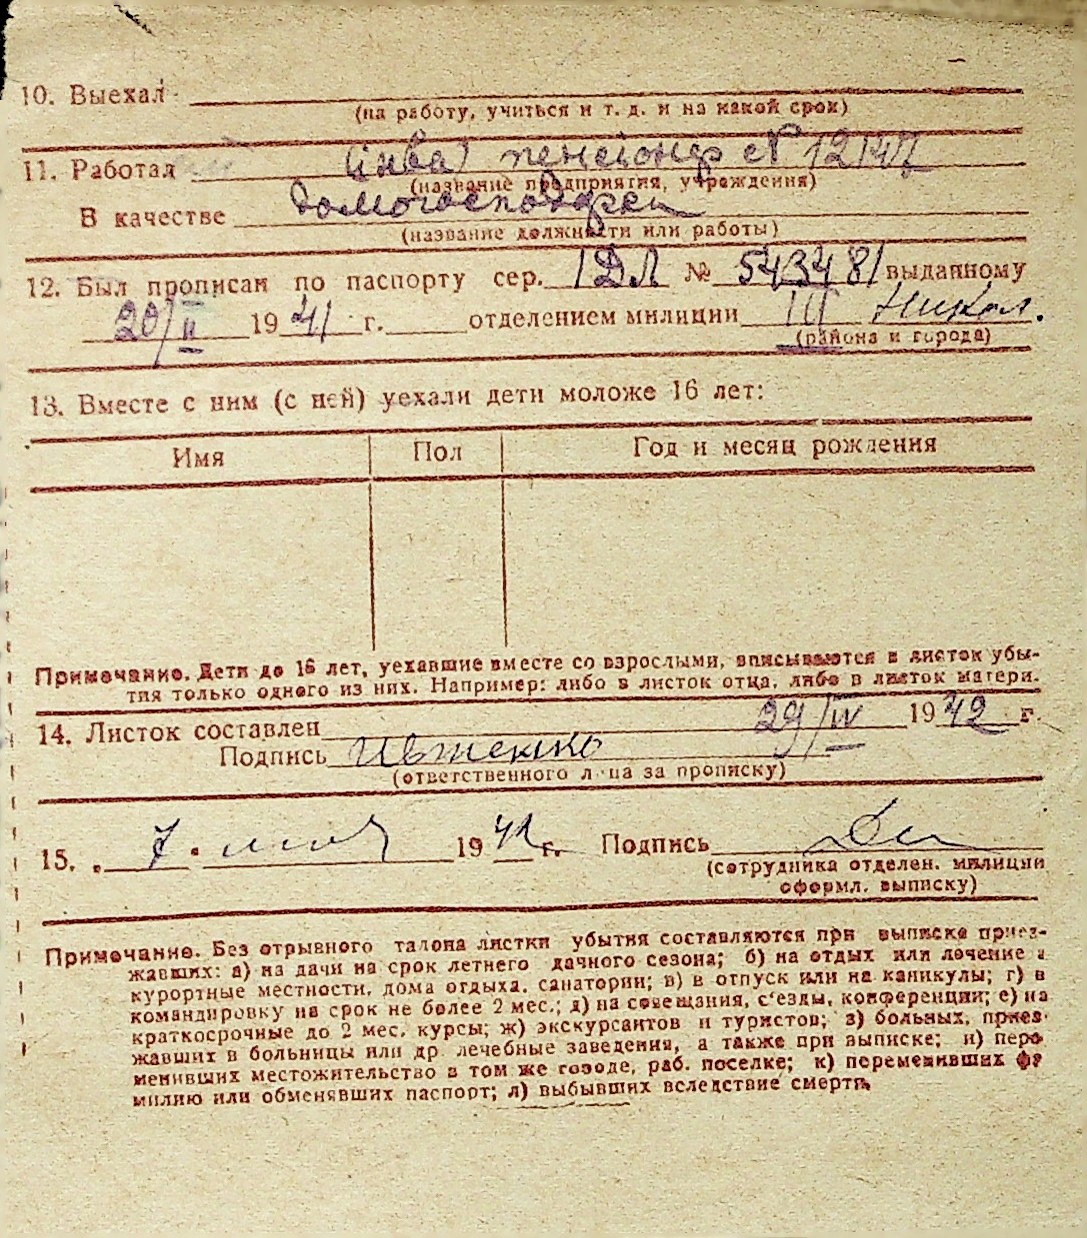 10. Выехал
(на работу, учиться и т. д. и на какой срок)
11. Работал пенсионер № 12147
(название предприятия, учреждения)
В качестве
(название должности или работы)
12. Был прописан по паспорту сер. IДЛ № 543481 выданному
20/II 1941 г. отделением милиции III Никол.
(района и города)
13. Вместе с ним (с ней) уехали дети моложе 16 лет:
Имя Пол Год и месяц рождения
Примечание. Дети до 16 лет, уехавшие вместе со взрослыми, вписываются в листок убы-
тия только одного из них. Например: либо в листок отца, либо в листок матери.
14. Листок составлен 29/IV 1942 г.
Подпись
(ответственного лица за прописку)
15. „ 7 " 1942 г. Подпись
(сотрудника отделен. милиции
оформл. выписку)
Примечание. Без отрывного талона листки убытия составляются при выписке приез-
жавших: а) на дачи на срок летнего дачного сезона; б) на отдых или лечение в
курортные местности, дома отдыха, санатории; в) в отпуск или на каникулы; г) в
командировку на срок не более 2 мес.; д) на совещания, с'езды, конференции; е) на
краткосрочные до 2 мес. курсы; ж) экскурсантов и туристов; з) больных, приез-
жавших в больницы или др. лечебные заведения, а также при выписке; и) пере
менивших местожительство в том же городе, раб. поселке; к) переменивших фа
милию или обменявших паспорт; л) выбывших вследствие смерти.